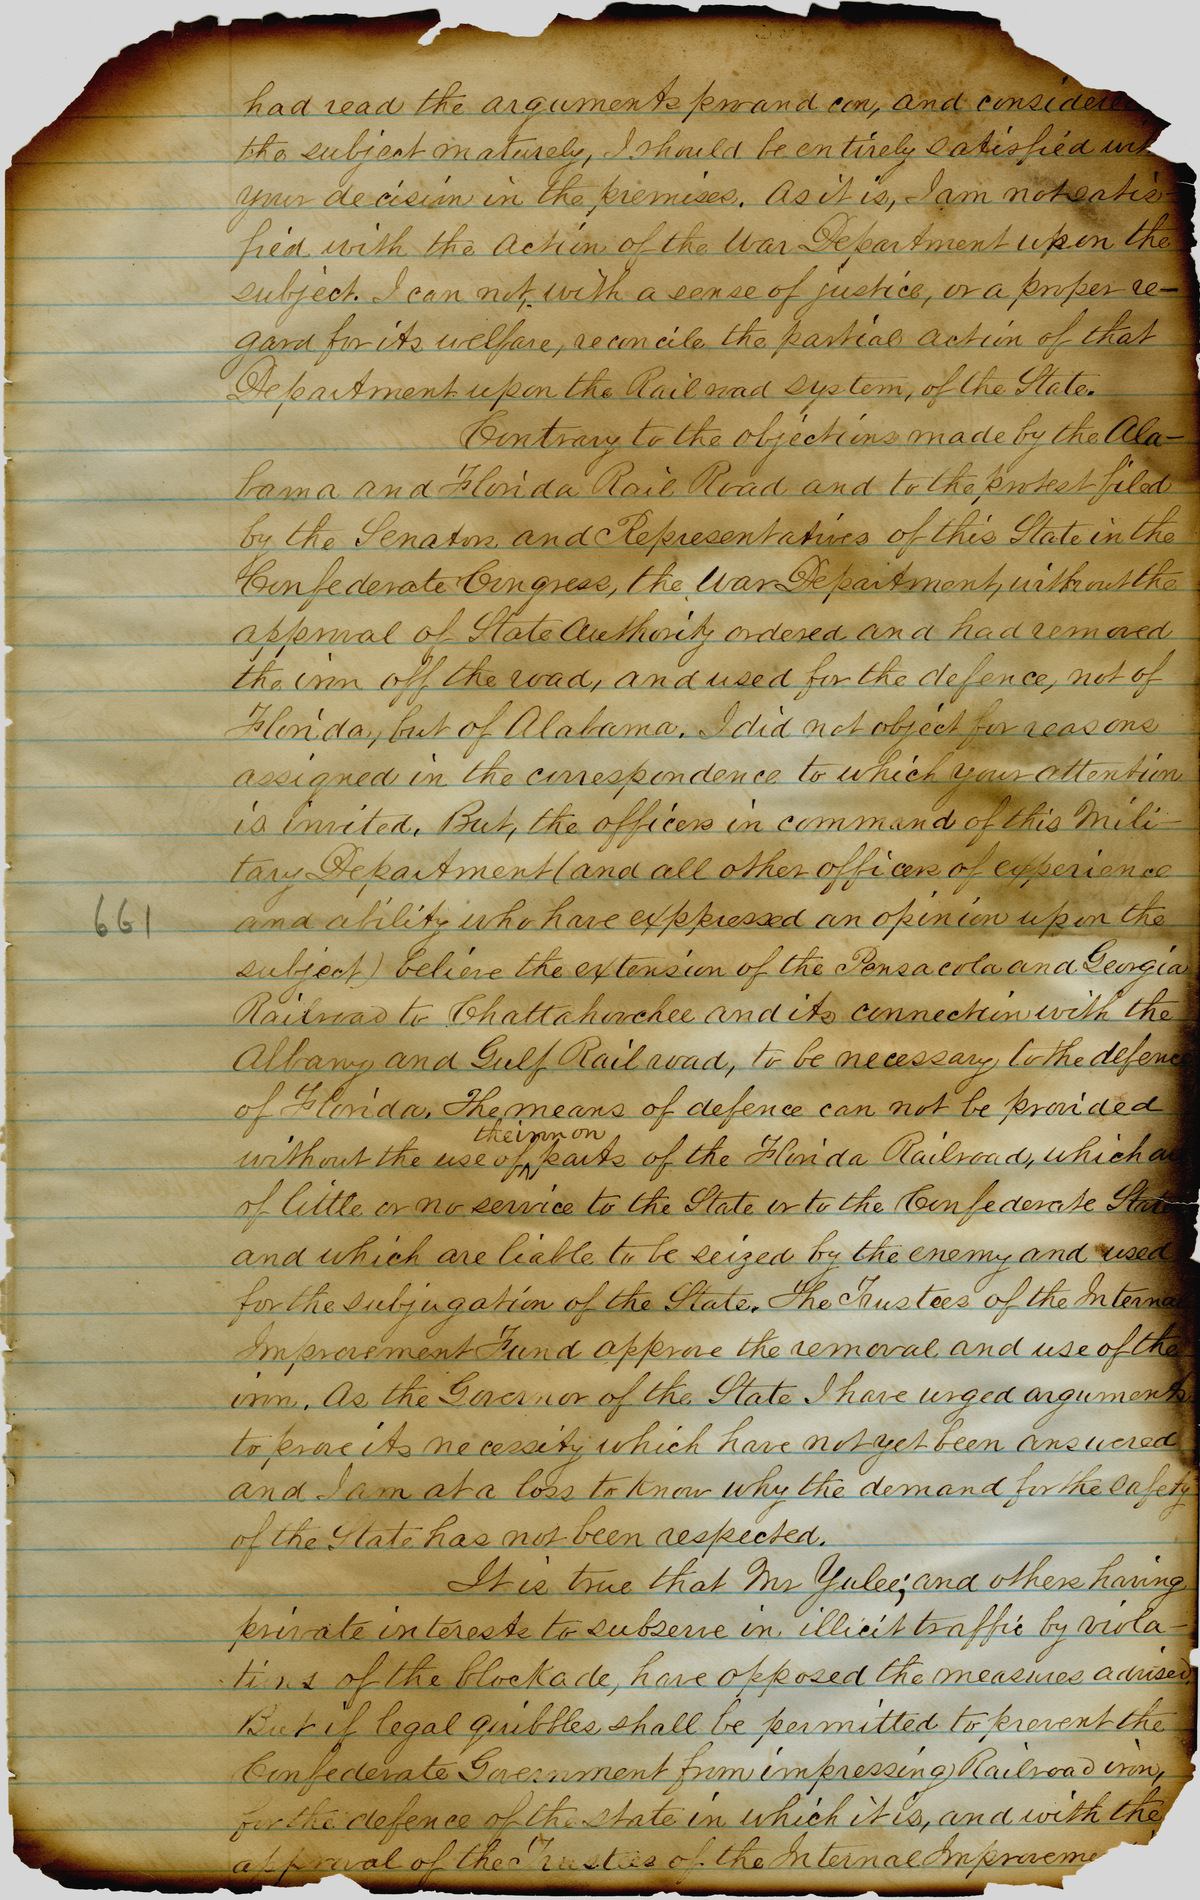 had read the arguments pro and con, and considered
the subject maturely, I should be entirely satisfied with
your decision in the premises. As it is, I am not satis-
fied with the action of the War Department upon the
subject. I can not, with a sense of justice, or a proper re-
gard for its welfare, reconcile the partial action of that
Department upon the Railroad system, of the State.
Contrary to the objections made by the Ala-
bama and Florida Rail Road and to the protest filed
by the Senators and Representatives of this State in the
Confederate Congress, the War Department, without the
approval of State Authority ordered and had removed
the iron off the road, and used for the defence, not of
Florida, but of Alabama. I did not object for reasons
assigned in the correspondence to which your attention
is invited. But, the officers in command of this Mili-
tary Department (and all other officers of experience
661
and ability who have exppressed an opinion upon the
subject) believe the extension of the Pensacola and Georgia
Railroad to Chattahoochee and its connection with the
Albany and Gulf Railroad, to be necessary to the defence
of Florida. The means of defence can not be provided
the iron on
without the use of parts of the Florida Railroad, which are
of little or no service to the State or to the Confederate States
and which are liable to be seized by the enemy and used
for the subjugation of the State. The Trustees of the Internal
Improvement Fund approve the removal and use of the
iron. As the Governor of the State I have urged arguments
to prove its necessity which have not yet been answered
and I am at a loss to know why the demand for the safety
of the State has not been respected.
It is true that Mr Yulee; and others having
private interests to subserve in illicit traffic by viola-
tions of the blockade, have opposed the measures advised.
But if legal quibbles shall be permitted to prevent the
Confederate Government from impressing Railroad iron,
for the defence of the state in which it is, and with the
approval of the Trustees of the Internal Improveme